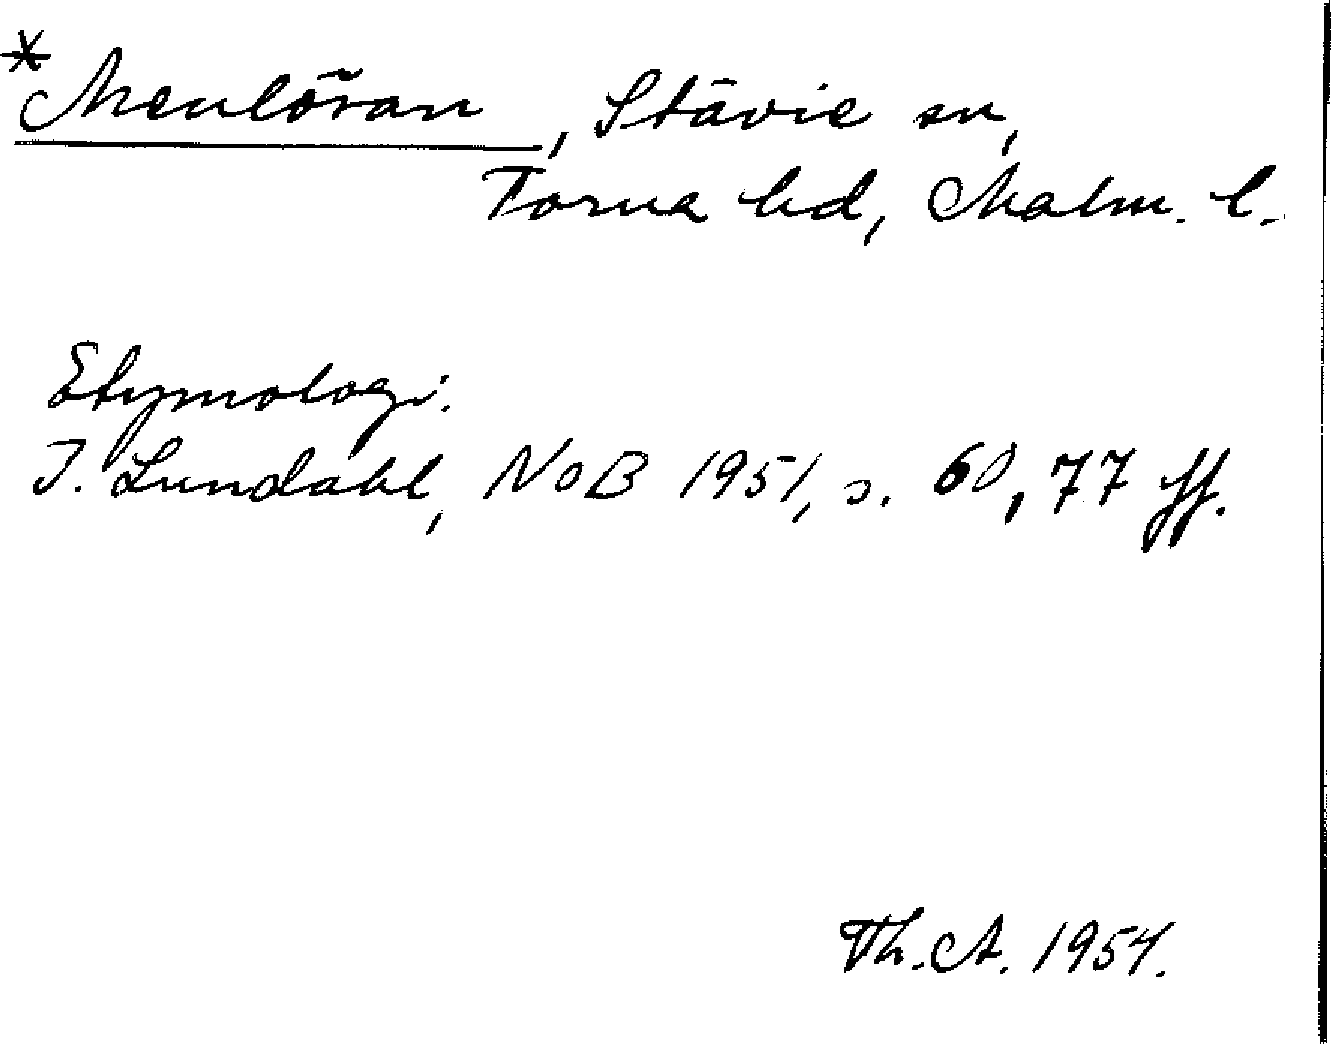 *Menlösan, Stävie sn,
Torna hd, Malm. l.
Etymologi.
I. Lundahl, NoB 1951, s. 60, 77 ff.
Th. A. 1954.